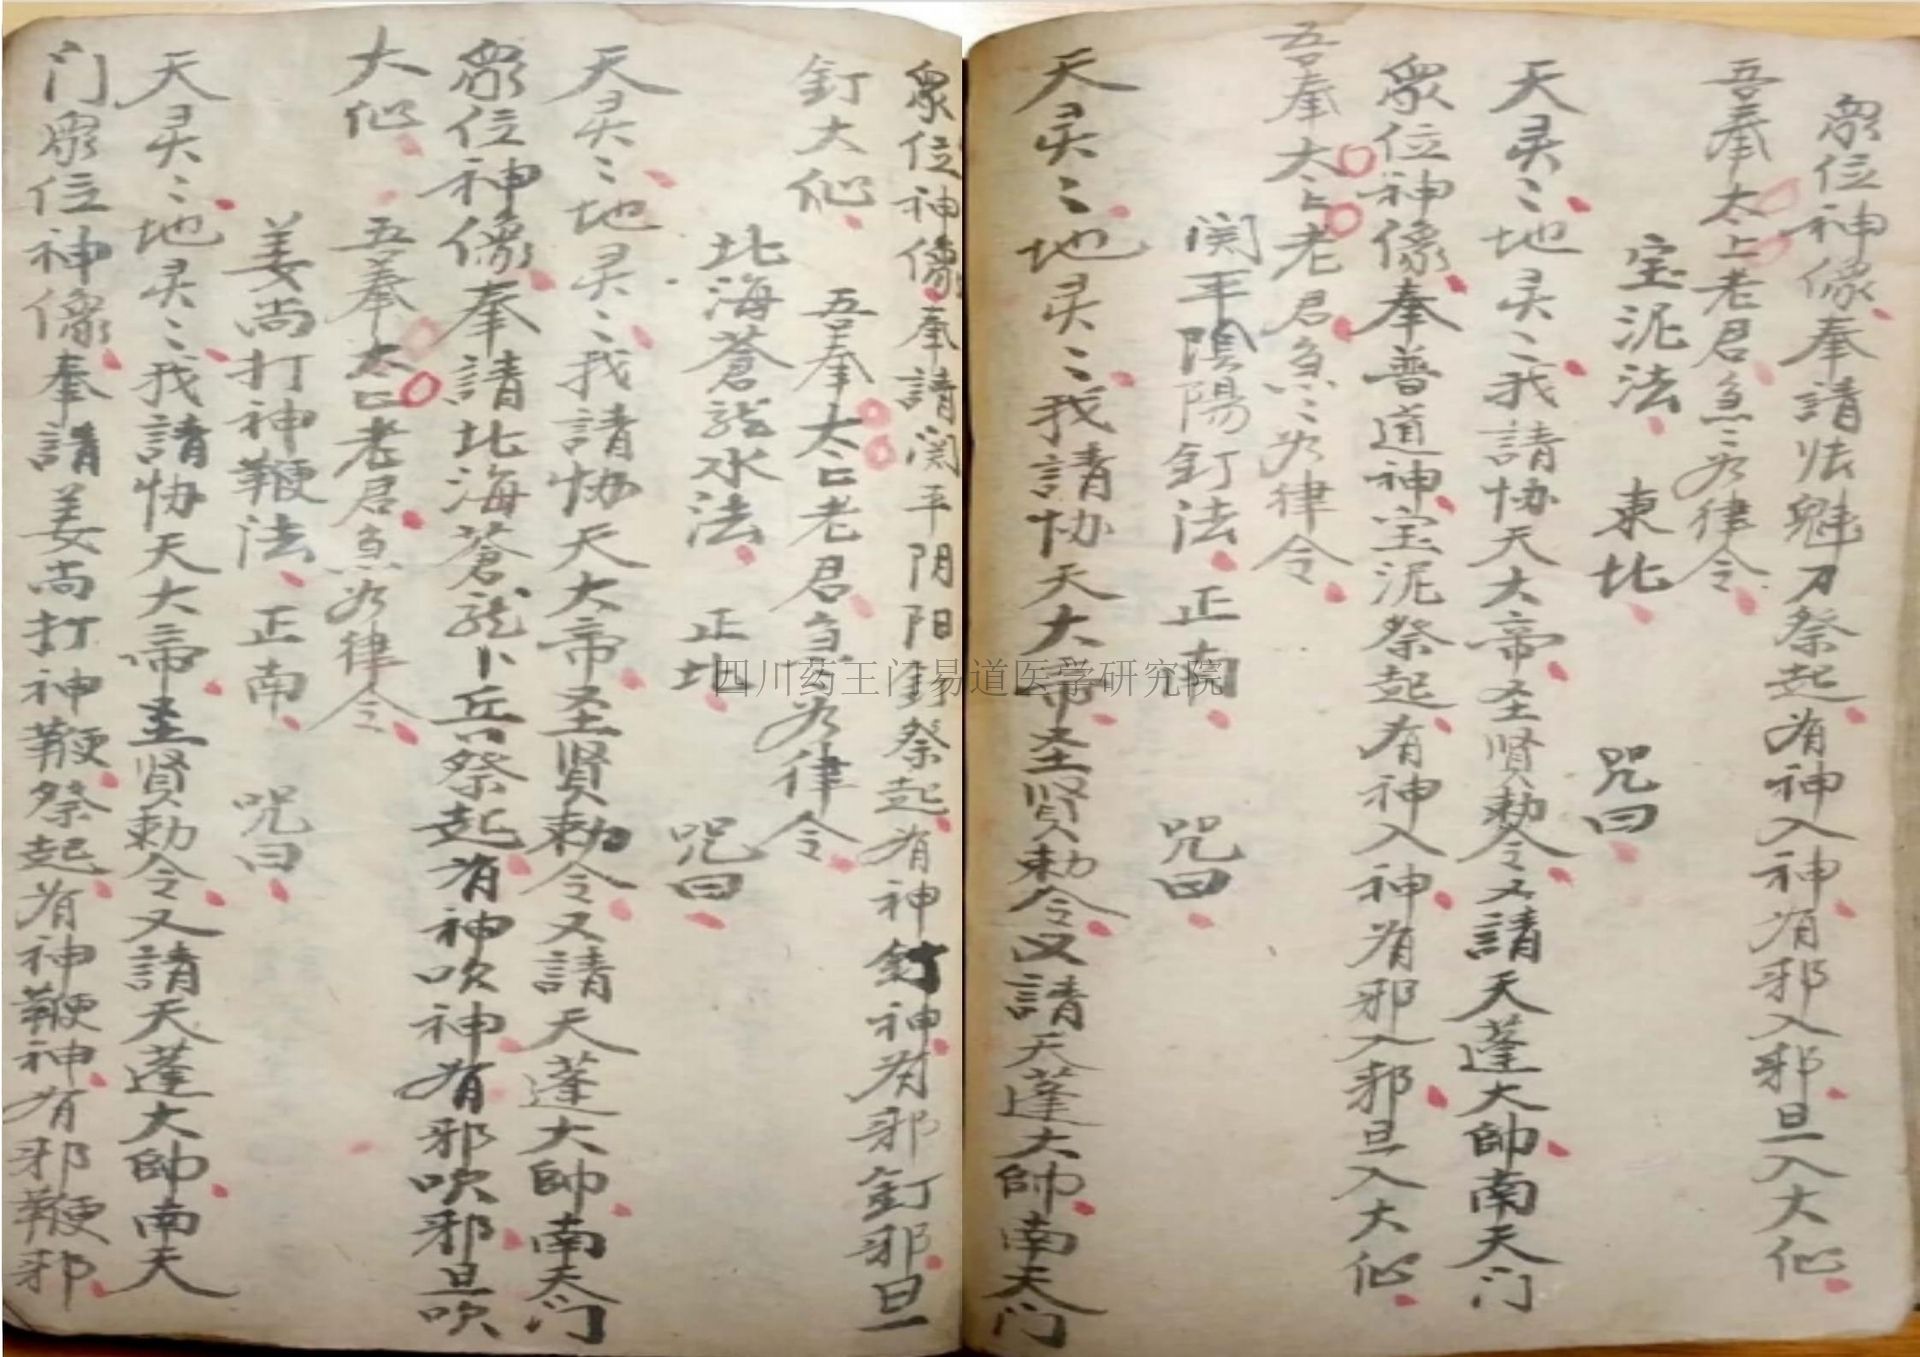 众位神像奉請法魁刀祭起有神入神有邪入邪旦入大仙
吾奉太上老君急〻如律令
宝泥法 東北 咒曰
天灵〻地灵〻我請协天大帝圣贤敕令又請天蓬大帥南天门
众位神像奉普道神宝泥祭起有神入神有邪入邪旦入大仙
吾奉太上老君急〻如律令
関平陰陽釘法 正南 咒曰
天灵〻地灵〻我請协天大帝圣贤敕令又請天蓬大帥南天门
众位神像奉請関平阴阳釘祭起有神釘神有邪釘邪旦
釘大仙 吾奉太上老君急〻如律令
北海蒼龍水法 正北 咒曰
天灵〻地灵〻我請协天大帝圣贤敕令又請天蓬大帥南天门
众位神像奉請北海蒼龍卜兵祭起有神吹神有邪吹邪旦吹
大仙 吾奉太上老君急〻如律令
姜尚打神鞭法 正南 咒曰
天灵〻地灵〻我請协天大帝圣贤敕令又請天蓬大帥南天
门众位神像奉請姜尚打神鞭祭起有神鞭神有邪鞭邪
四川药王门易道医学研究院